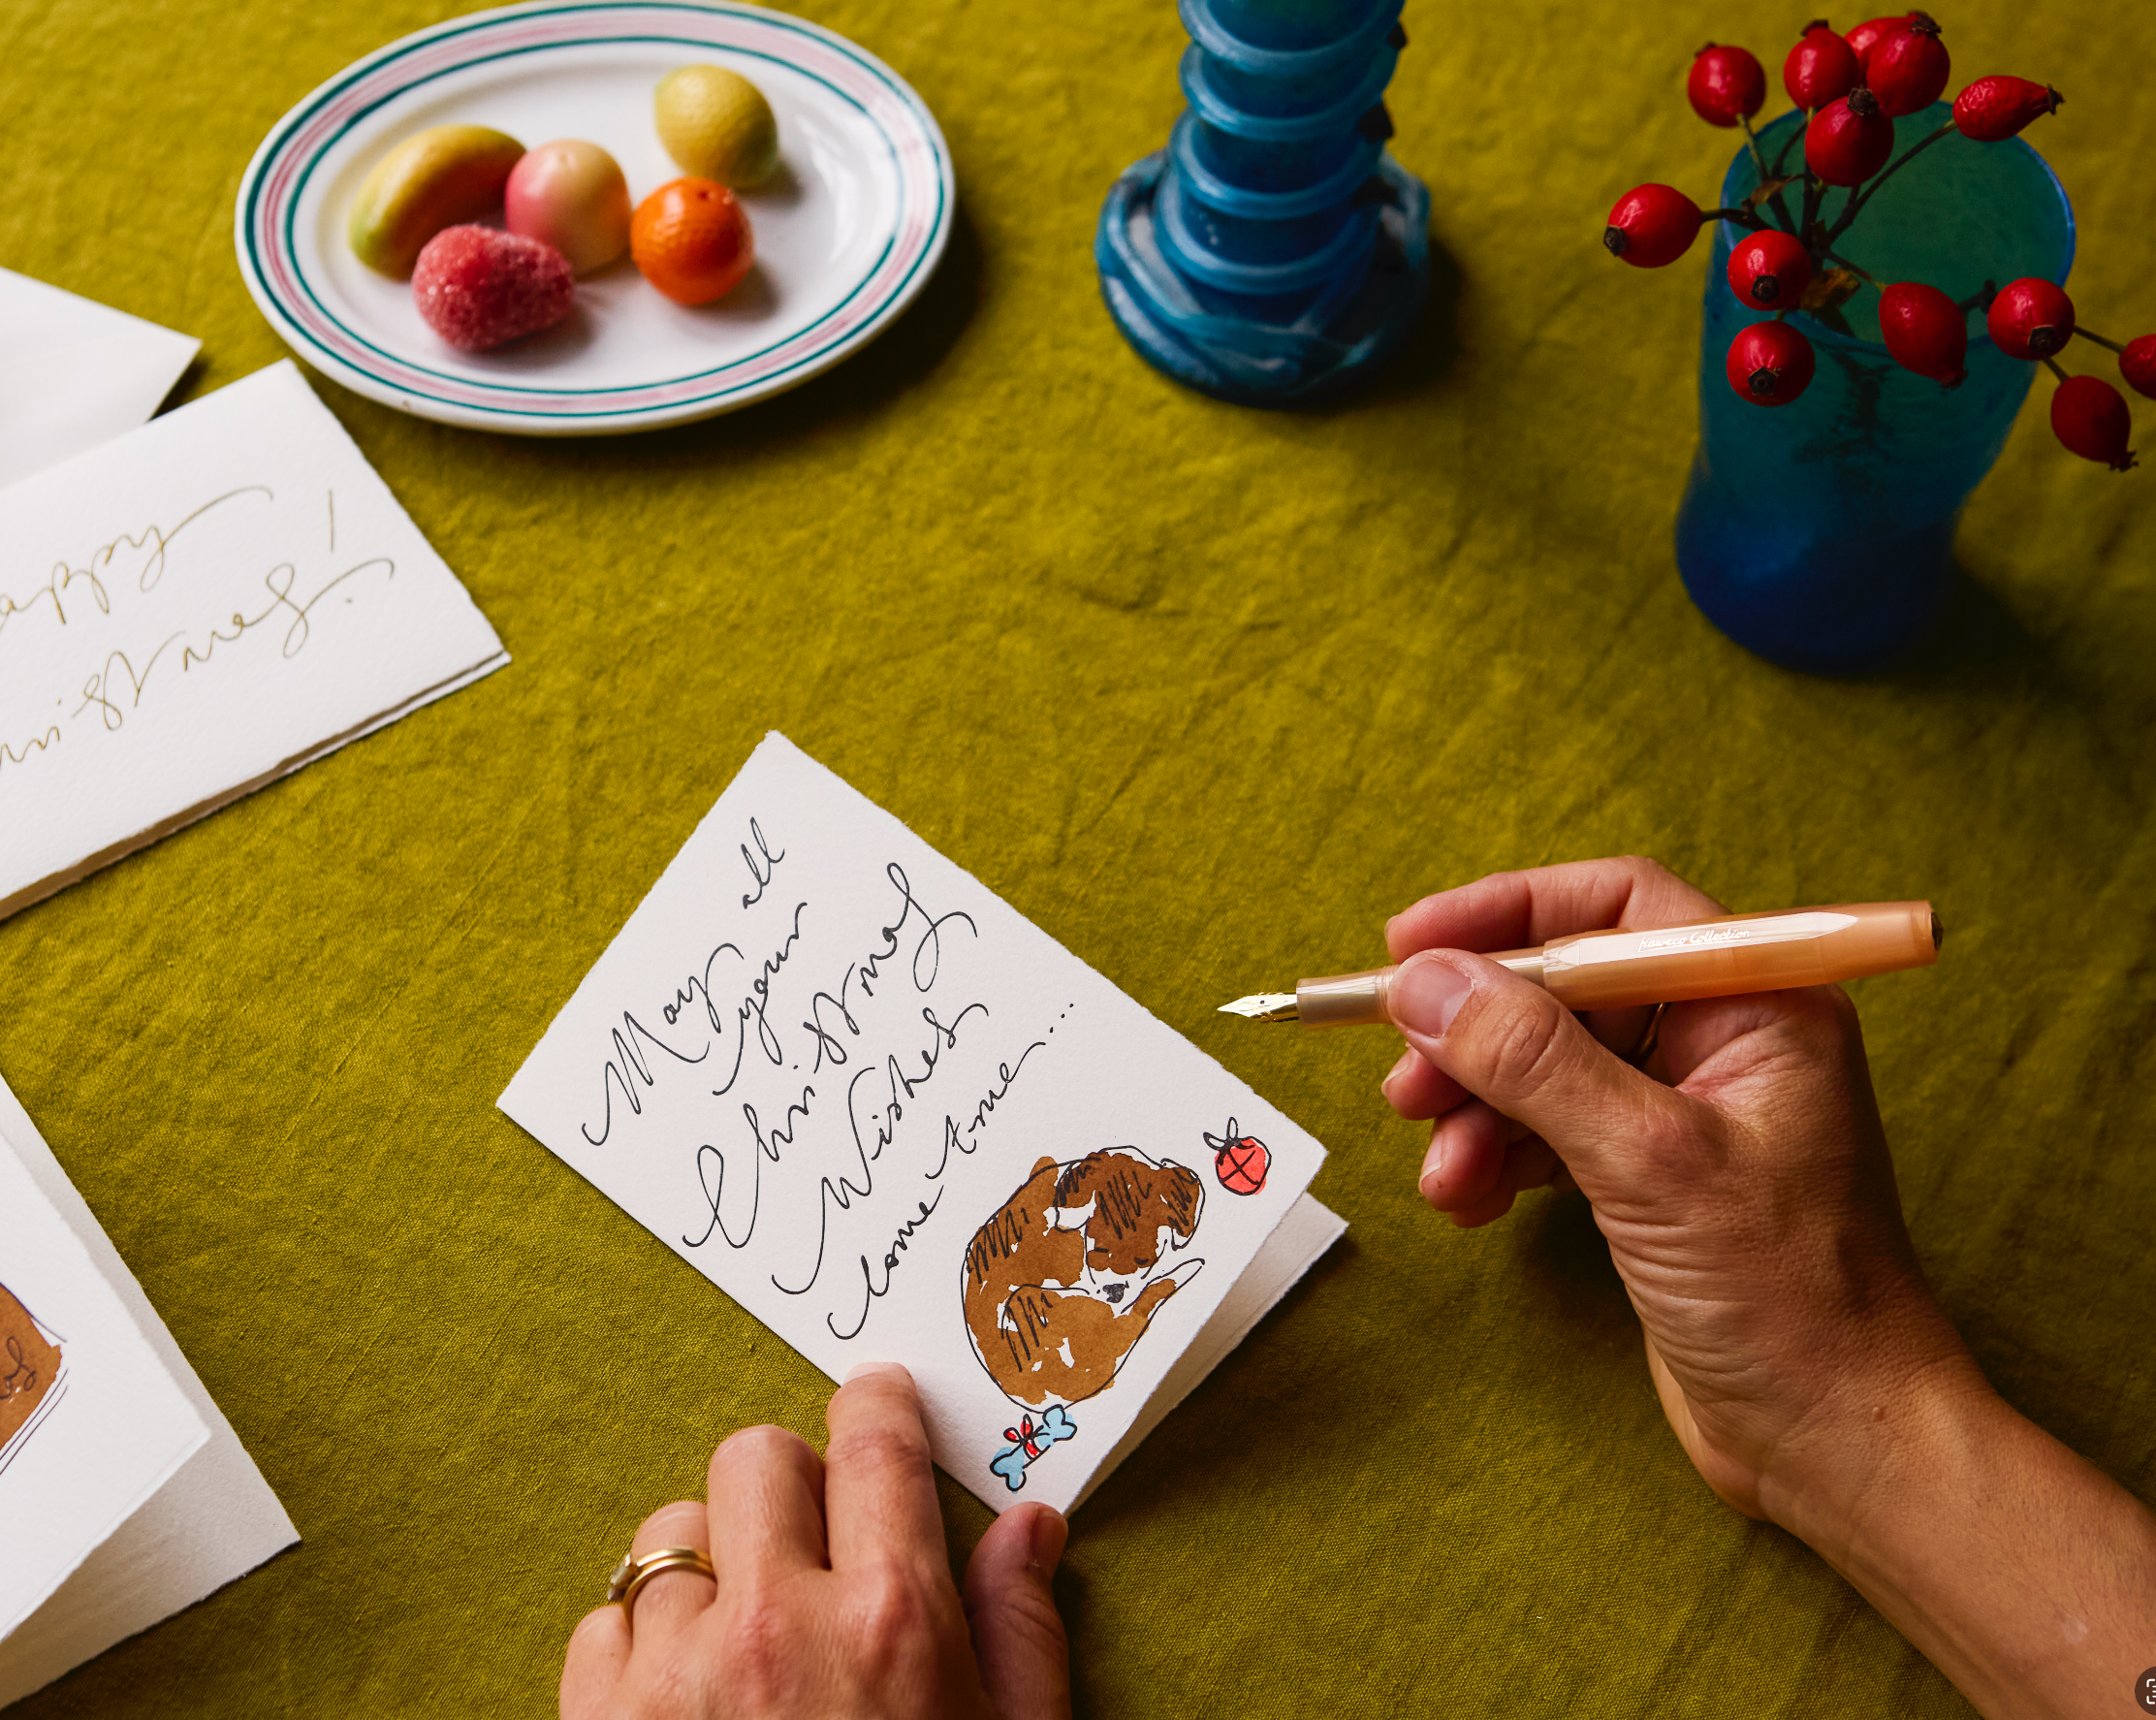 appy
ristmas!
May all
your
Christmas
Wishes
come true....
Kaweco Collection